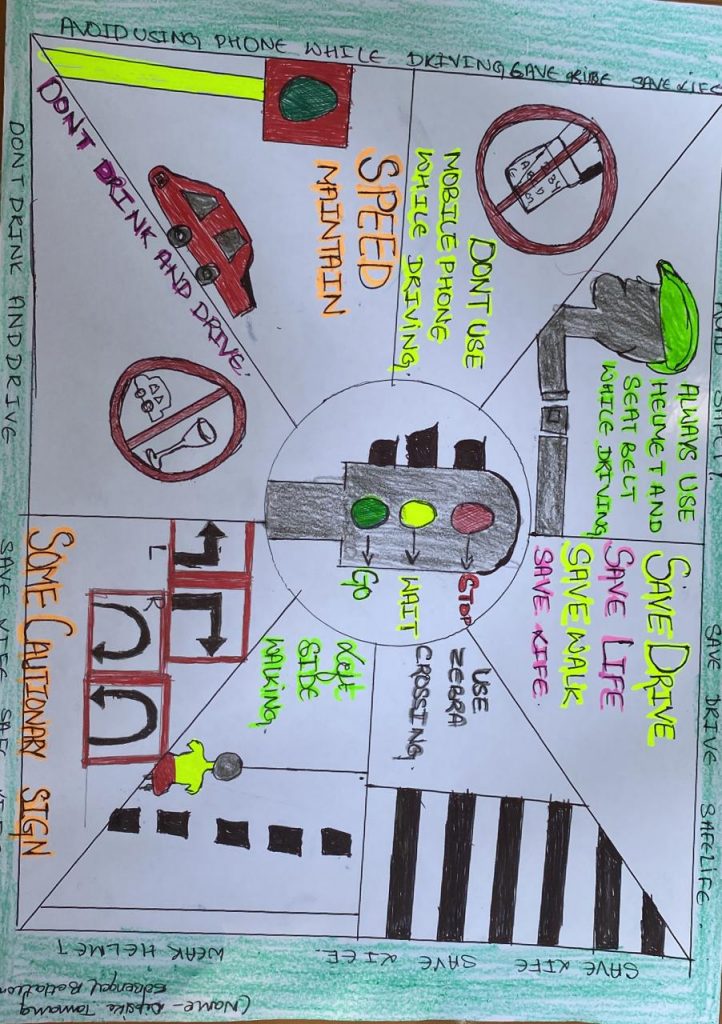 AVOID USING PHONE WHILE DRIVING
SAVE LIFE
DONT DRINK AND DRIVE
DONT DRINK AND DRIVE.
MAINTAIN
SPEED
DONT USE
MOBILE PHONE
WHILE DRIVING.
ALWAYS USE
HELMET AND
SEAT BELT
WHILE DRIVING
SAVE DRIVE
SAVE LIFE
SAVE WALK
SAVE LIFE.
STOP
WAIT
GO
USE
ZEBRA
CROSSING.
Left
SIDE
WALKING.
L
R
SOME CAUTIONARY SIGN
SAVE DRIVE SAFELIFE.
SAVE LIFE SAVE LIFE
SAVE LIFE.
WEAK HELMET
(Name - Tamang
Bengal Battalion